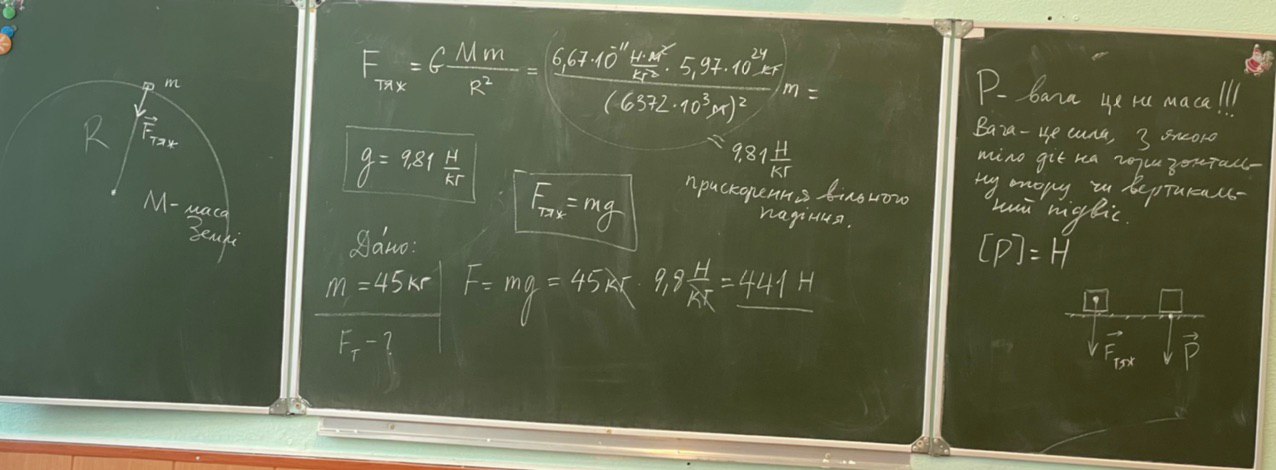 m
R
F⃗тяж
M - маса
Землі
Fтяж = G Mm/R² = (6,67·10⁻¹¹ Н·м²/кг² · 5,97·10²⁴ кг)/(6372·10³ м)² m =
= 9,81 Н/кг
прискорення вільного
падіння.
g = 9,81 Н/кг
Fтяж = mg
Дано:
m = 45 кг
Fт - ?
F = mg = 45 кг · 9,8 Н/кг = 441 Н
P - вага це не маса!!!
Вага - це сила, з якою
тіло діє на горизонталь-
ну опору чи вертикаль-
ний підвіс.
[P] = Н
F⃗тяж
P⃗